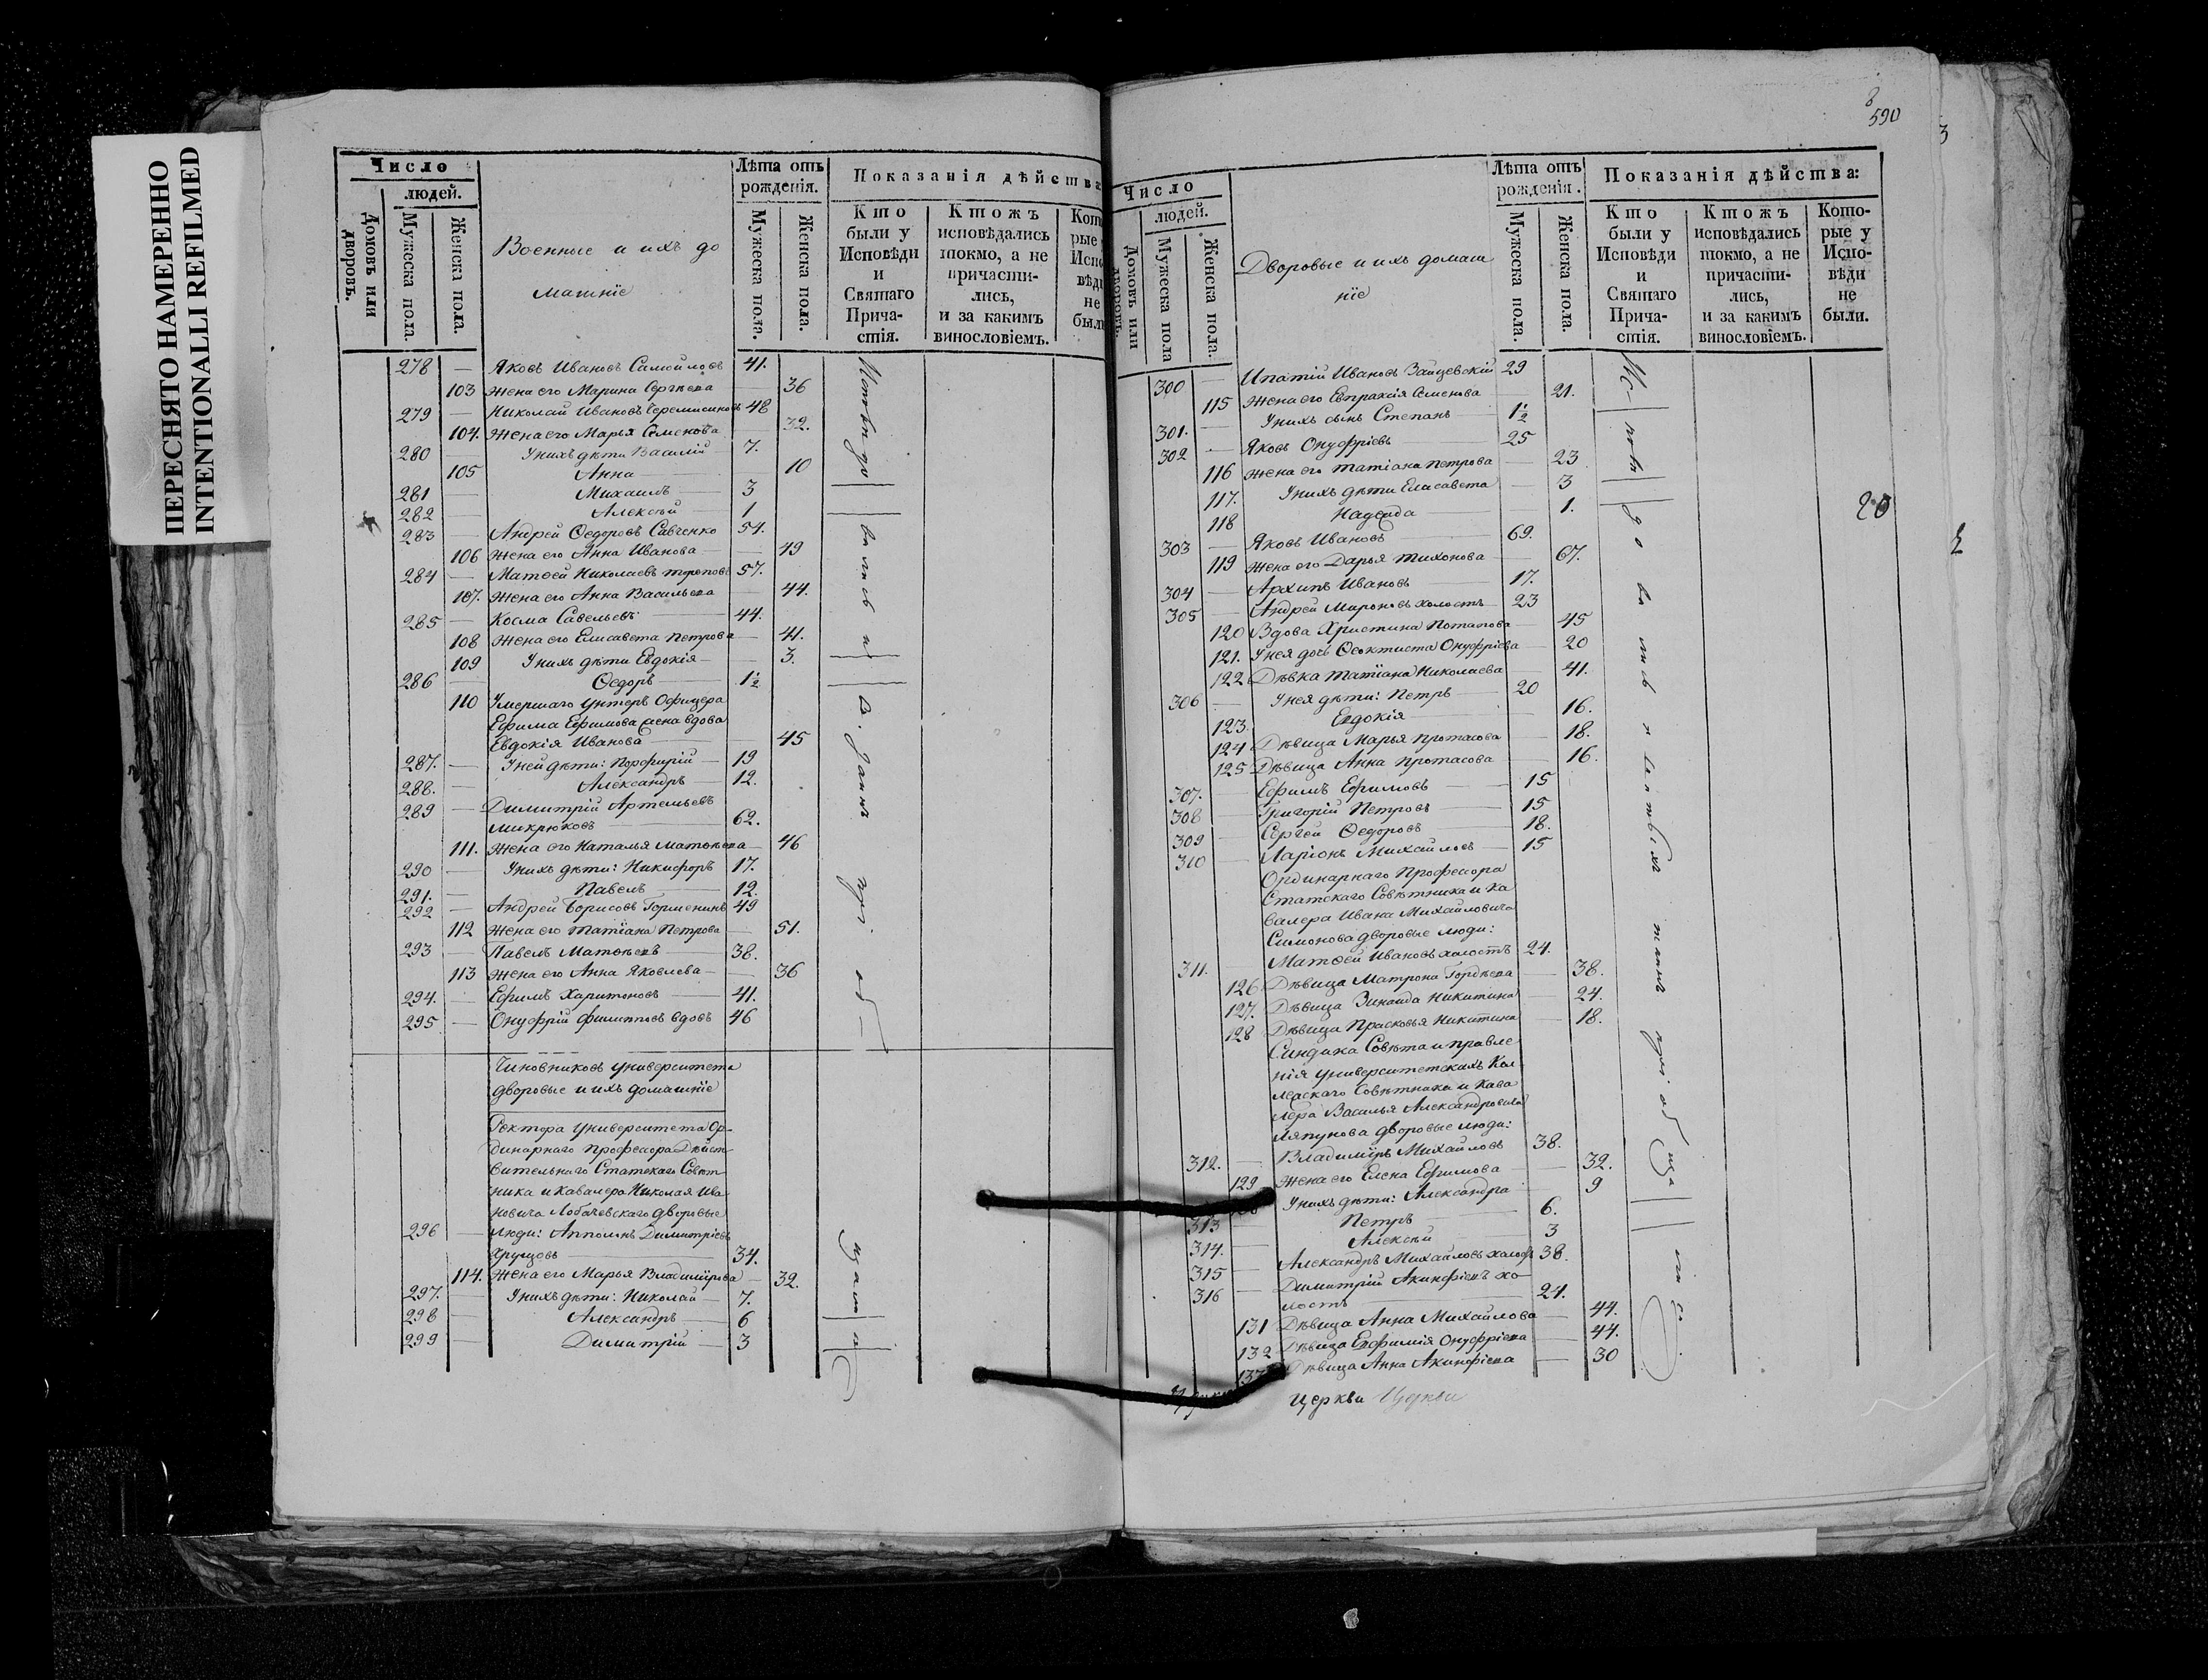 ПЕРЕСНЯТО НАМЕРЕННО
INTENTIONALLI REFILMED
Число
людей.
Домовъ или дворовъ.
Мужеска пола.
Женска пола.
Военные и ихъ до
машніе
Лѣта отъ рожденія.
Мужеска пола.
Женска пола.
Показанія дѣйства
Кто были у Исповѣди и Святаго Причастія.
Ктожъ исповѣдались токмо, а не причастились, и за какимъ винословіемъ.
278 — Яковъ Ивановъ Самойловъ 41.
103 Жена его Марина Сергѣева — 36
279 — Николай Ивановъ Черемисиновъ 48
104. Жена его Марья Семенова — 32.
280 — У нихъ дѣти Василій — 7.
105 Анна 10
281 — Михаилъ — 3
282 — Алексѣй — 1
283 — Андрей Ѳедоровъ Савченко 54.
106 Жена его Анна Иванова — 49
284 — Матѳей Николаевъ 57.
107. Жена его Анна Васильева — 44.
285 — Косма Савельевъ 44.
108 Жена его Елисавета Петрова — 41.
109 У нихъ дѣти Евдокія — 3.
286 — Ѳедоръ — 1½
110 Умершаго унтеръ Офицера
Ефима Ефимова жена вдова
Евдокія Иванова — 45
287. — У ней дѣти: Порфирій — 19
288. — Александръ — 12.
289 — Димитрій Артемьевъ
Микрюковъ — 62.
111. Жена его Наталья Матѳѣева — 46
290 — У нихъ дѣти: Никифоръ 17.
291. — Павелъ — 12.
292 — Андрей Борисовъ Горменинъ 49
112 Жена его Татіана Петрова — 51.
293 — Павелъ Матѳѣевъ — 38.
113 Жена его Анна Яковлева — 36
294. — Ефимъ Харитоновъ — 41.
295 — Онуфрій Филиповъ вдовъ 46
Чиновниковъ университета
дворовые и ихъ домашніе
Ректора университета Ор-
динарнаго Профессора Дѣйст
вительнаго Статскаго Совѣт
ника и Кавалера Николая Ива
новича Лобачевскаго дворовые
296 — люди: Апполонъ Димитріевъ
Хрущовъ — 34.
114. Жена его Марья Владимірова — 32.
297. — У нихъ дѣти: Николай — 7.
298 — Александръ — 6
299 — Димитрій — 3
590
Число
людей.
Домовъ или дворовъ.
Мужеска пола
Женска пола.
Дворовые и ихъ домаш
ніе
Лѣта отъ рожденія.
Мужеска пола.
Женска пола.
Показанія дѣйства:
Кто были у Исповѣди и Святаго Причастія.
Ктожъ исповѣдались токмо, а не причастились, и за какимъ винословіемъ.
Которые у Исповѣди не были.
300 — Ипатій Ивановъ Зайцевскій 29
115 Жена его Евпраксія Семенова — 21.
301. — У нихъ сынъ Степанъ — 1½
302 — Яковъ Онуфріевъ — 25
116 Жена его Татіана Петрова — 23
117. У нихъ дѣти Елисавета — 3
118 Надежда — 1.
303 — Яковъ Ивановъ — 69.
119 Жена его Дарья Тихонова — 67.
304 — Архипъ Ивановъ — 17.
305 — Андрей Мироновъ холостъ — 23
120 Вдова Христина Потапова — 45
121. У нея дочь Ѳеоктиста Онуфріева — 20
122 Дѣвка Татіана Николаева — 41.
306 — У нея дѣти: Петръ — 20
123. Евдокія — 16.
124 Дѣвица Марья Протасова — 18.
125 Дѣвица Анна Протасова — 16.
307. — Ефимъ Ефимовъ — 15
308 — Григорій Петровъ — 15
309 — Сергѣй Ѳедоровъ — 18.
310 — Ларіонъ Михайловъ — 15
Ординарнаго Профессора
Статскаго Совѣтника и Ка
валера Ивана Михайловича
Симонова дворовые люди:
311. Матѳей Ивановъ холостъ 24.
126 Дѣвица Матрона Гордѣева — 38.
127. Дѣвица Зинаида Никитина — 24.
128 Дѣвица Прасковья Никитина — 18.
Синдика Совѣта и правле
нія университетскихъ Кол
лежскаго Совѣтника и Кава
лера Василья Александровича
Ляпунова дворовые люди:
312. — Владиміръ Михайловъ 38.
129 Жена его Елена Ефимова — 32.
У нихъ дѣти: Александра 9
313 — Петръ — 6.
314. — Алексѣй — 3
315 — Александръ Михайловъ холостъ 38.
316 — Димитрій Акинфіевъ хо-
лостъ — 24.
131 Дѣвица Анна Михайлова — 44.
132 Дѣвица Евфимія Онуфріева — 44.
133 Дѣвица Анна Акинфіева — 30
20
церкви Церкви